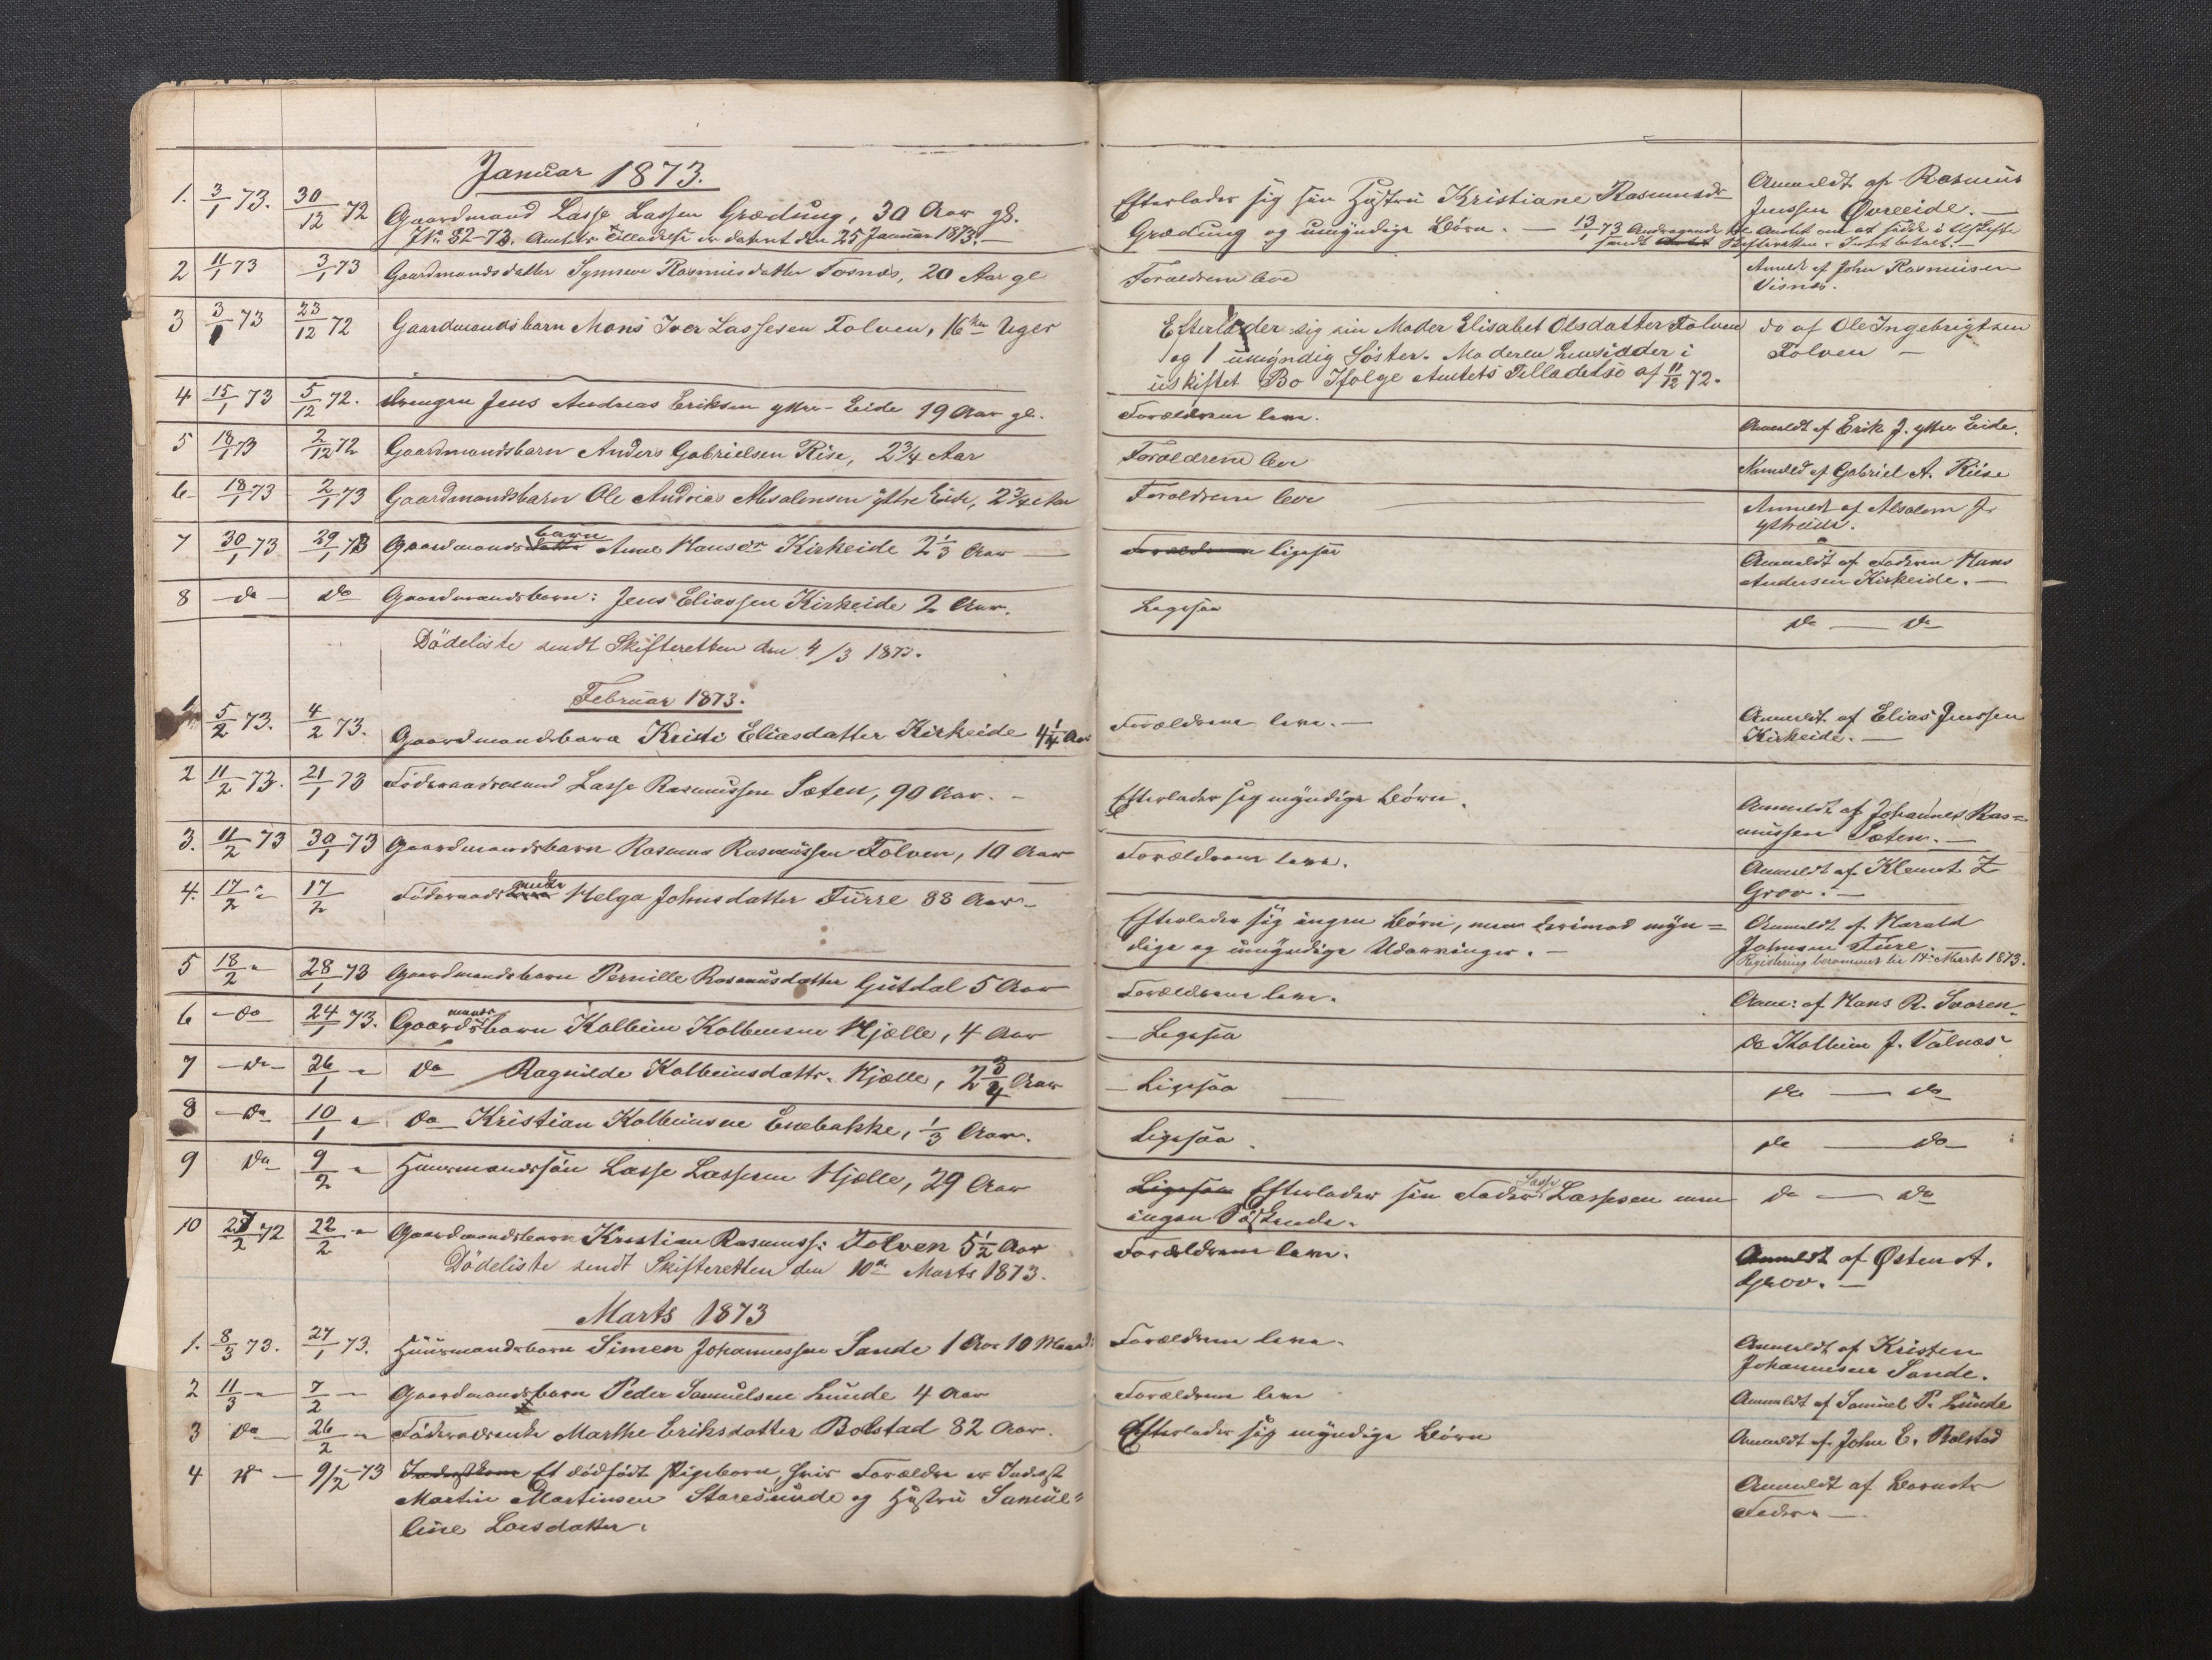 Januar 1873.
1. 3/1 73. 30/12 72 Gaardmand Lasse Lassen Grædung, 30 Aar gl. Efterlader sig sin Hustru Kristiane Rasmusdr Anmeldt af Rasmus
JNo 32-73. Amtets Tilladelse er datert den 25 Januar 1873.— Grædung og umyndige Børn. — 13/1 73 Andragende til Amtet om at sidde i uskifte Jenssen Øvreeide.—
sendt Skifteretten.
2 11/1 73 3/1 73 Gaardmandsdatter Synneve Rasmusdatter Tosnæs, 20 Aar gl Forældrene leve Anmeldt af John Rasmusen
Visnæs.
3 3/1 73 23/12 72 Gaardmandsbarn Mons Iver Lassesen Folven, 16 Uger Efterlader sig sin Moder Elisabet Olsdatter Folven do af Ole Ingebrigtsen
og 1 umyndig Söster. Moderen hensidder i Folven —
uskiftet Bo Ifölge Amtets Tilladelse af 11/12 72.
4 15/1 73 5/12 72. Drengen Jens Andreas Eriksen ytre-Eide 19 Aar gl. Forældrene leve. Anmeldt af Erik J. ytre Eide.
5 18/1 73 2/12 72 Gaardmandsbarn Anders Gabrielsen Rise, 2 3/4 Aar Forældrene leve Anmeldt af Gabriel A. Riise
6 18/1 73 2/1 73 Gaardmandsbarn Ole Andreas Absalonsen ytre Eide, 2 3/4 Aar Forældrene leve Anmeldt af Absalom J.
ytreeide.
7 30/1 73 29/1 73 Gaardmandsbarn Anne Hansdr Kirkeide 2 1/3 Aar — Forældrene ligesaa Anmeldt af Faderen Hans
Andersen Kirkeide.—
8 —do— do Gaardmandsbarn: Jens Eliassen Kirkeide 2 Aar. Ligesaa do — do
Dödeliste sendt Skifteretten den 4/3 1873.
Februar 1873.
1 5/2 73. 4/2 73. Gaardmandsbarn Kristi Eliasdatter Kirkeide 4 1/4 Aar Forældrene leve.— Anmeldt af Elias Jenssen
Kirkeide.—
2 11/2 73. 21/1 73 Föderaadsmand Lasse Rasmussen Sæten, 90 Aar. — Efterlader sig myndige Børn. Anmeldt af Johannes Ras=
mussen Sæten.—
3. 11/2 73 30/1 73 Gaardmandsbarn Rasmus Rasmussen Folven, 10 Aar Forældrene leve. Anmeldt af Klemet
Grov.—
4. 17/2 " 17/2 Föderaadsenke Helga Johnsdatter Furre 83 Aar— Efterlader sig ingen Børn, men derimod myn= Anmeldt af Harald
dige og umyndige Udarvinger.— Johnsen Fure.—
Registering berammet til 14 Marts 1873.
5 18/2 " 28/1 73 Gaardmandsbarn Pernille Rasmusdatter Gutdal 5 Aar Forældrene leve. Anm: af Hans R. Svoren.
6 —do 24/1 73. Gaardmandsbarn Kolbein Kolbensen Hjælle, 4 Aar — Ligesaa do Kolbein J. Valnæs
7 —do— 26/1 " do Ragnilde Kolbeinsdattr. Hjælle, 2 3/4 Aar — Ligesaa do — do
8 —do 10/1 " do Kristian Kolbeinsen Enebakke, 1/3 Aar. Ligesaa. do — do
9 do 9/2 " Huusmandssön Lasse Lassesen Hjælle, 29 Aar Ligesaa Efterlader sin Fader Lasse Lassesen men do — do
ingen Söskende.
10 27/2 72 22/2 " Gaardmandsbarn Kristian Rasmuss: Folven 5 1/2 Aar Forældrene leve. Anmeldt af Østen A.
Grov.—
Dödeliste sendt Skifteretten den 10de Marts 1873.
Marts 1873
1. 8/3 73. 27/1 73. Huusmandsbarn Simen Johannessen Sande 1 Aar 10 Maand: Forældrene leve. Anmeldt af Kristen
Johannesen Sande.
2 11/3 " 7/2 — Gaardmandsbarn Peder Samuelsen Lunde 4 Aar Forældrene leve Anmeldt af Samuel P. Lunde
3 do 26/2 " Föderaadsenke Marthe Eriksdatter Bolstad 82 Aar. Efterlader sig myndige Børn Anmeldt af John E. Bolstad
4 do — 9/2 73 Et dödfödt Pigebarn, hvis Forældre er Inderst Anmeldt af Barnets
Martin Martinsen Staresunde og Hustru Samue" Fader.—
line Larsdatter.